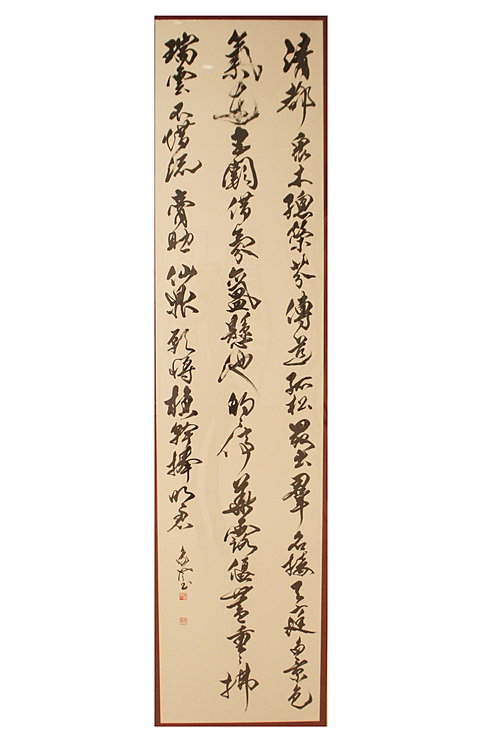 清都眾木總榮芬傳道孤松最出羣名接天庭多景色
氣連宮闕借氛氳懸池的〻停華露偃蓋重〻拂
瑞雲不惜流膏助仙鼎願將楨幹捧明君